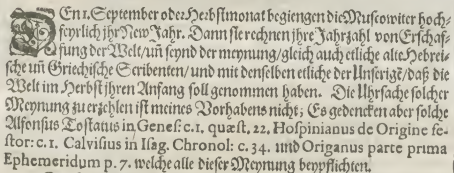 DEn 1. September oder Herbstmonat begiengen die Muscowiter hoch-
feyrlich jhr New Jahr. Dann sie rechnen jhre Jahrzahl von Erschaf-
fung der Welt/ uñ seynd der meynung/ gleich auch etliche alte Hebrei-
sche uñ Griechische Scribenten/ und mit denselben etliche der Unserigẽ/ daß die
Welt im Herbst jhren Anfang soll genommen haben. Die Uhrsache solcher
Meynung zu erzehlen ist meines Vorhabens nicht; Es gedencken aber solche
Alfonsus Tostatus in Genes: c.1, quæst, 22, Hospinianus de Origine fe-
stor: c. 1. Calvisius in Isag. Chronol: c. 34. und Origanus parte prima
Ephemeridum p. 7. welche alle dieser Meynung beypflichten.